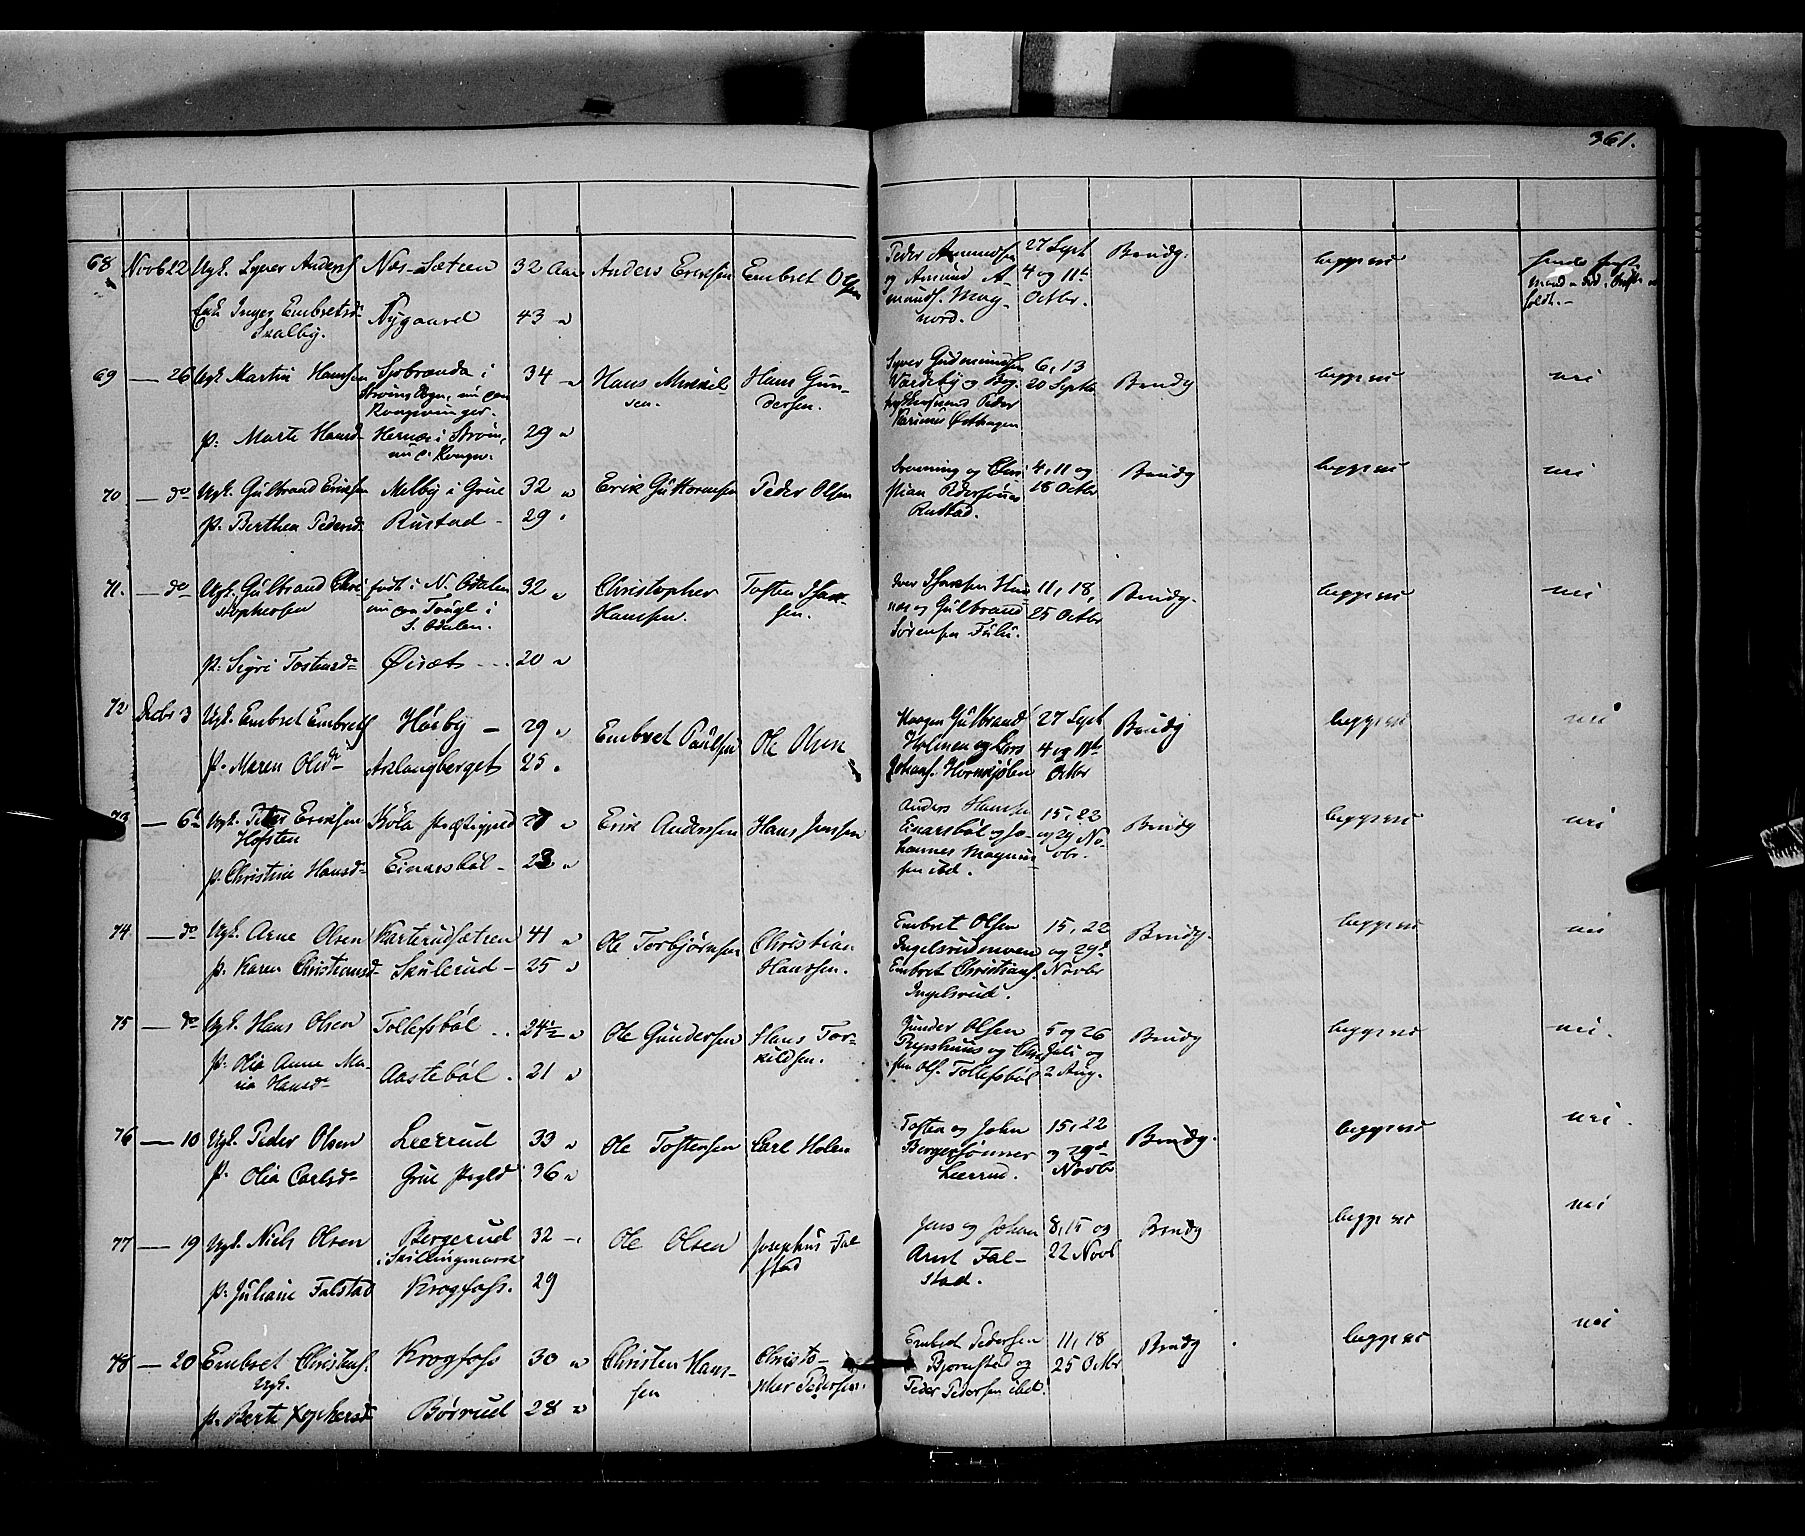 361.
68 Novb 22 Ugk. Syver Anders. Nos-Sætren 32 Aar Anders Ericksen Embret Olsen
Enk. Inger Embretsd. Skalby. Nygaard 43 "
Peder Amundsen og Amund Amunds. Magnord. 27 Sept 4 og 11te Octbr. Brudg. begge nei
69 — 26 Ugk. Martin Hansen Sjobranda i Strøms Sogn, nu paa Kongsvinger. 34 " Hans Mikkelsen. Hans Gundersen.
p: Marte Hansd. Hernæs i Strøm, nu p. Kongsv. 29 "
Syver Gudmundsen Vardeby og Peder Karinus Østhagen 6, 13 20 Septbr Brudg begge nei nei
70 — do Ugk. Gulbrand Eriksen Melby i Grue 32 " Erik Guttormsen Peder Olsen
p. Berthea Pedersd. Rustad - 29 "
og Christian Pedersønner Rustad. 4, 11 og 18 Octbr Brudg begge nei nei
71. — do Ugk. Gulbrand Christophersen født i N. Odalen nu paa Tougl i S. Odalen. 32 " Christopher Hanssen. Tosten
p. Sigri Tostensd. Øisæt 20 "
og Gulbrand Sørensen Fulu. 11, 18, 25 Octbr Brudg. begge nei nei
72 Decbr 3 Ugk. Embret Embrets. Houby — 29 " Embret Paulsen Ole Olsen
p. Maren Olsdr Aslangberget 25 "
Haagen Gulbrands. Holmen og Lars Johans. Hornkjølen 27 Sept 4 og 11te Octbr Brudg begge nei nei
73 — 6te Ugk. Peter Eriksen Hofsten Kola Præstegjeld 27 " Erik Anderssen Hans Jenssen
p. Christine Hansd. Einarsbøl - 23 "
Anders Hanssen Einarsbøl og Johannes Magnussen ibd. 15, 22 og 29 Novbr. Brudg begge nei nei
74 — do Ugk. Arne Olsen Karterudsætren 41 " Ole Torbjørnsen Christian Hanssen.
p. Karen Christiansd. Skulerud - 25 "
Embret Olsen Ingelsrudmoen Embret Christians. Ingelsrud. 15, 22 og 29de Novbr Brudg. begge nei nei
75 — do Ugk. Hans Olsen Tollefsbøl 24½ " Ole Gundersen Hans Torkildsen.
p. Olia Anne Maria Hansd. Aastebøl . 21 "
Gunder Olsen og Ols. Tollefsbøl 5 og 26 Juli og 2 Aug. Brudg begge nei nei
76 — 10 Ugk. Peder Olsen Leerrud 33 " Ole Tostensen Carl Holen
p. Olia Carlsd. Grue Pgld 36 "
Tosten og John Bergersønner Leerrud. 15, 22 og 29de Novbr Brudg. begge nei nei.
77 — 19 Ugk. Niels Olsen Bergerud i Skillingmark 32 — Ole Olsen Josephus Falstad
p. Juliane Falstad Krogfoss. 29
Jens og Johan Arnt Falstad. 8, 15 og 22 Novb Brudg begge nei nei
78 — 20 Embret Christens. Ugk. Krogfoss 30 " Christen Hanssen Christopher Pedersen.
p. Berte Xophersd. Børrud 28 "
Embret Pedersen Bjørnstad og Peder Pedersen ibd. 11, 18 25 Octbr Brudg begge nei nei